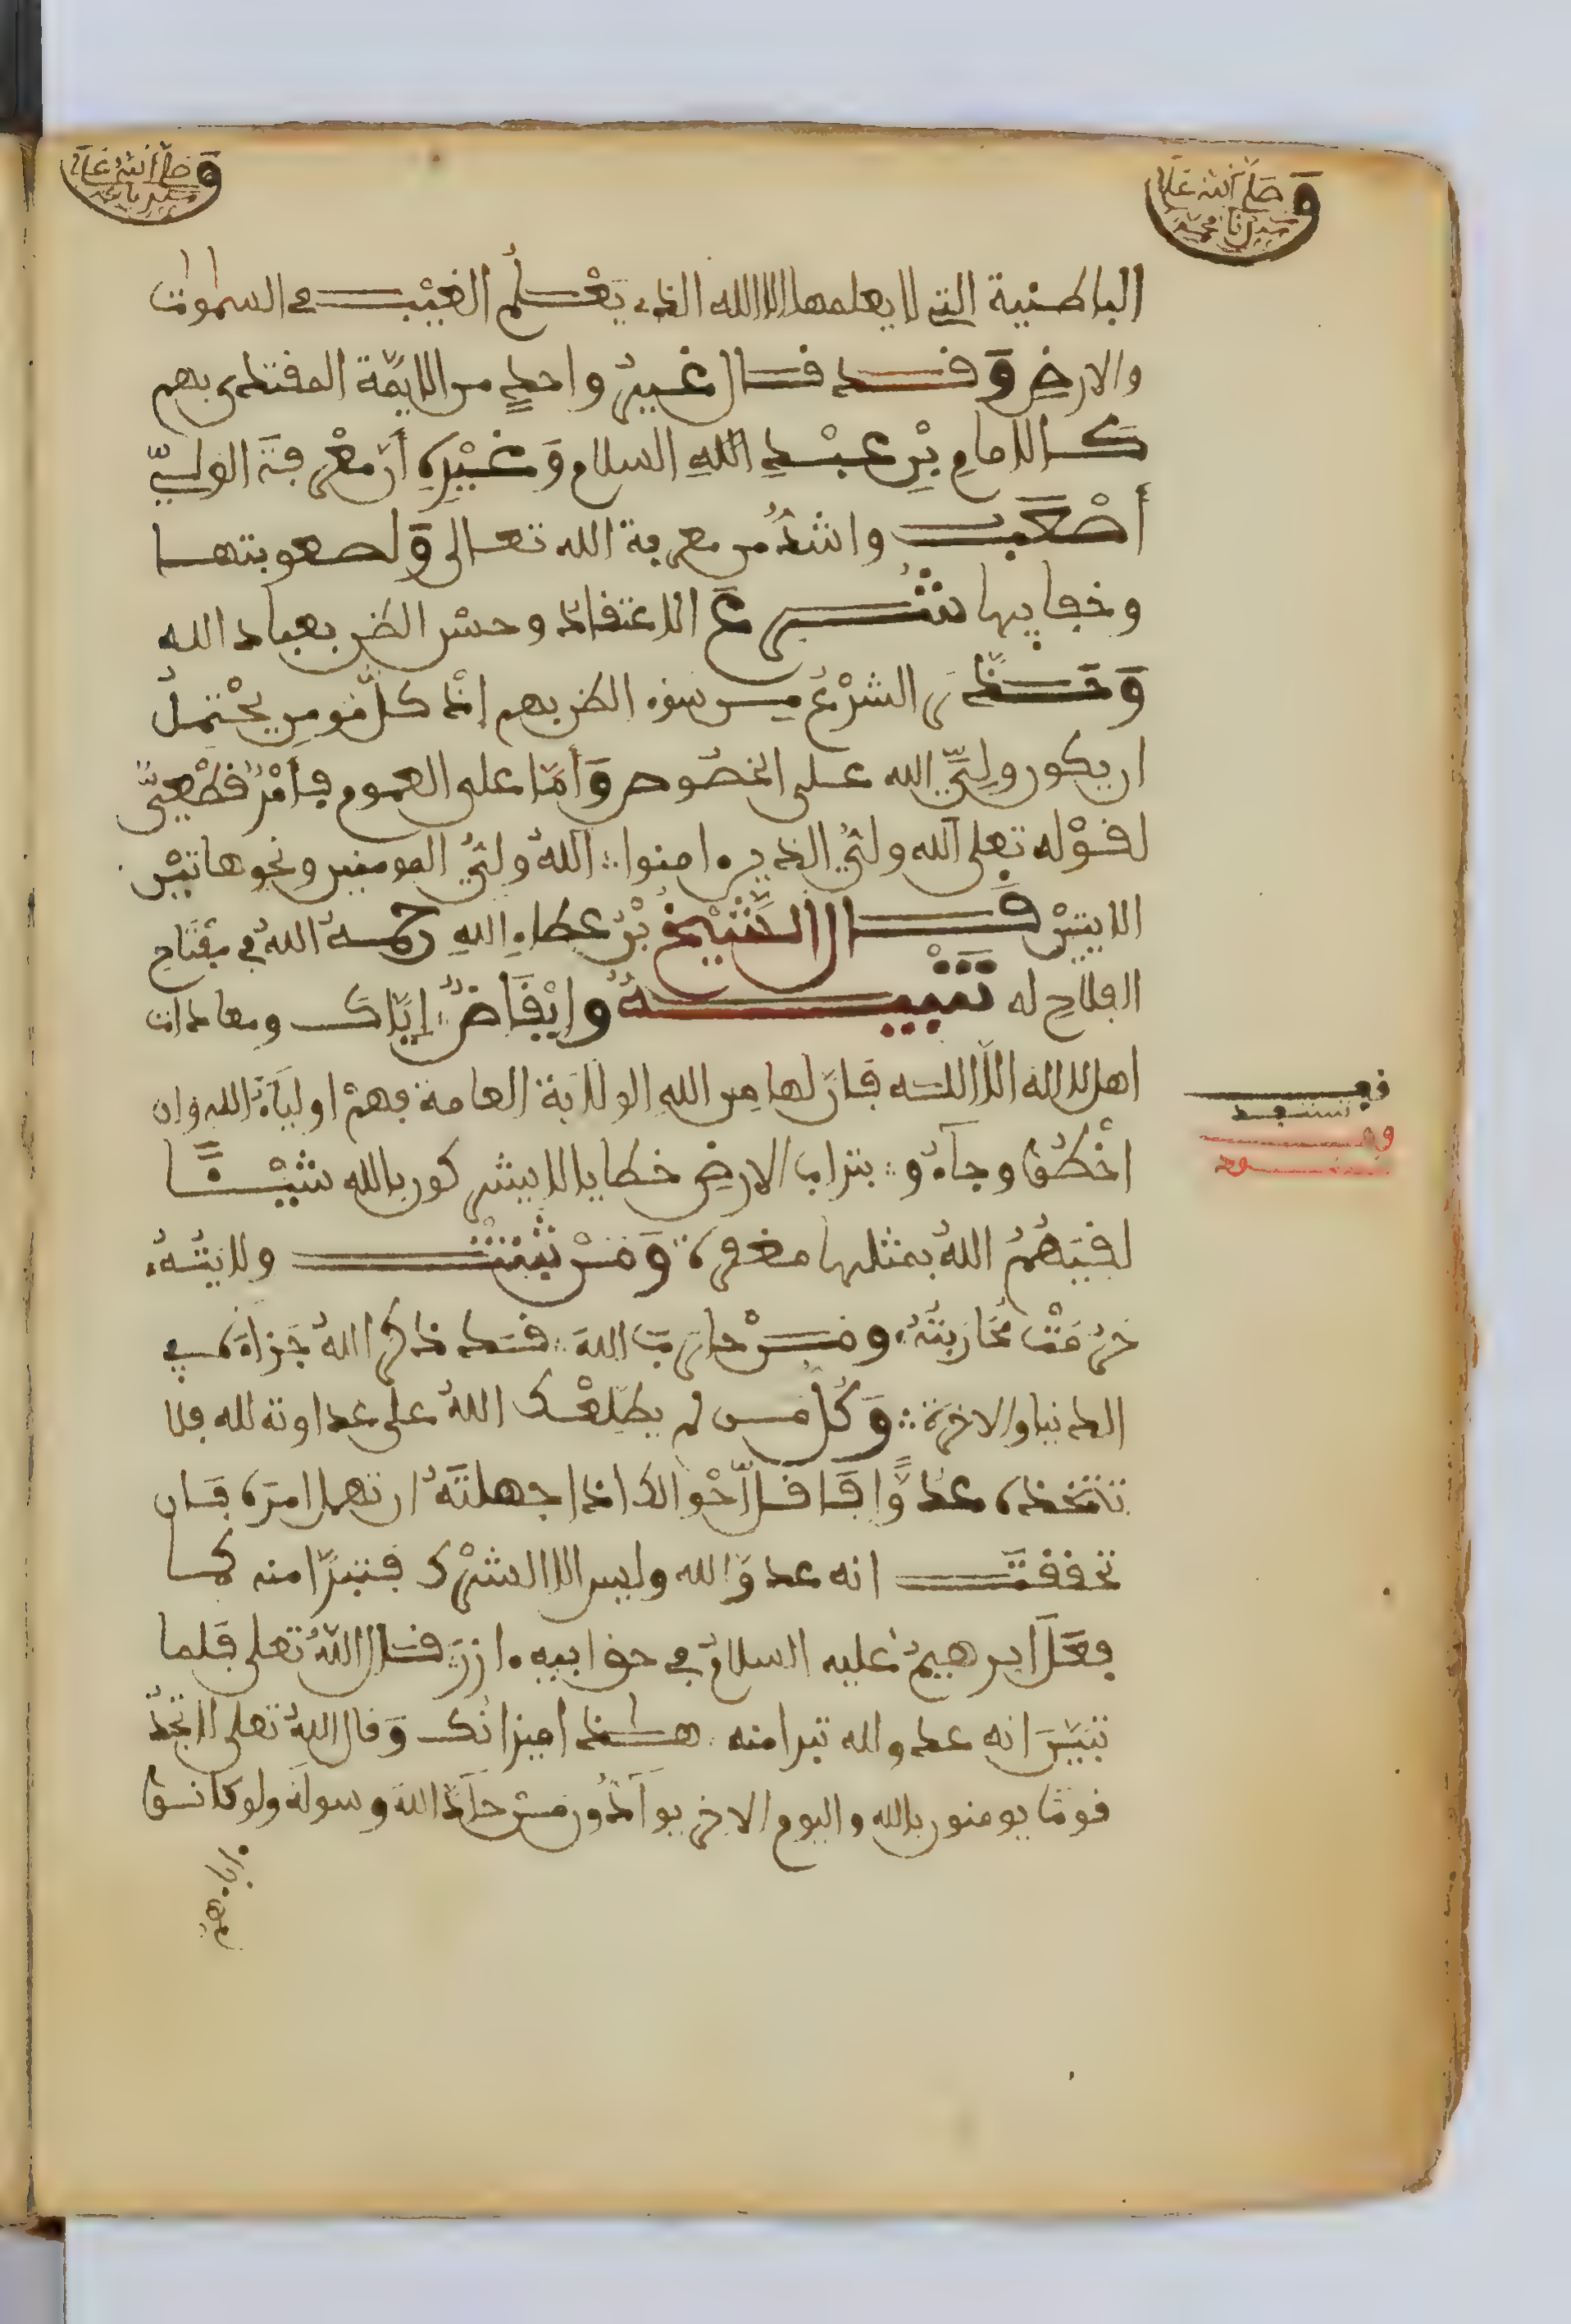 وصلى الله على
سيدنا محمد
وصلى الله على
سيدنا محمد
الباطنية التي لا يعلمها الا الله الذي يَعْلَمُ الغَيْبَ في السموات
والارضِ وَقد قال غيرُ واحدٍ من الايمّة المقتدى بهم
كالامامِ بْنِ عبْدِ اللهِ السلام وَغيْرِهِ أن معْرفةَ الوليّ
أَصْعَبُ واشدُّ من معرفة الله تعالى وَلصعوبتها
وخفايها شُرعَ الاعتقادُ وحسْن الظن بعباد الله
وَحَذَّرَ الشرْعُ من سوء الظن بهم إذ كل مُومِنٍ يحْتَمِلُ
ان يكون وَلِيَّ الله على الخصُوص وَأمّا على العموم فأمْرٌ قطْعيٌّ
لقوْله تعلى الله ولىُّ الذين ءامنوا ۞ اللهُ ولىُّ المومنين ونحوها تيْن
الايتيْن قَال الشّيْخُ بْنُ عطاءِ اللهِ رحمهُ اللهُ في مِفتَاحِ
الفلاحِ له تَنْبِيهٌ وإيْقَاضٌ إيَّاكَ ومعادات
اهل لا اله الّا الله فإنّ لها مِن اللهِ الولايَةَ العامةَ فهمْ اوليَآءُ الله وان
اخْطَئُوا وجآءُو ۞ بتراب الارضِ خطايا لا يشركون بالله شيْئًا
لقيَهُمُ اللهُ بمثلها مغفرة ۞ وَمَنْ ثَبَتَتْ ولايتُهُ
حَرُمَتْ مُحَاربتُهُ ومَنْ حارَبَ اللهَ فقد ذكر اللهُ جَزاءَه في
الدنيا والاخرة ۞ وَكُل من لم يطلعْك اللهُ على عداوته لله فلا
تتّخذه عدوًّا فَاقل أحْوالك اذا جهلتَهُ ان تهمل امرَه فإن
تحققتَ انه عدوّ لله وليس الا المشْرك فتبرّا منه كما
فعَلَ ابرهيمُ عليه السلامُ في حق ابيه ءازرَ قال اللهُ تعلى فلما
تبيّنَ انه عدو لله تبرا منه هذا ميزانُك وَقال اللهُ تعلى لا تجدُ
قومًا يومنون بالله واليوم الاخر يوآدُّون منْ حآدَّ اللهَ وسولَه ولو كانوا
ءاباءهمُ